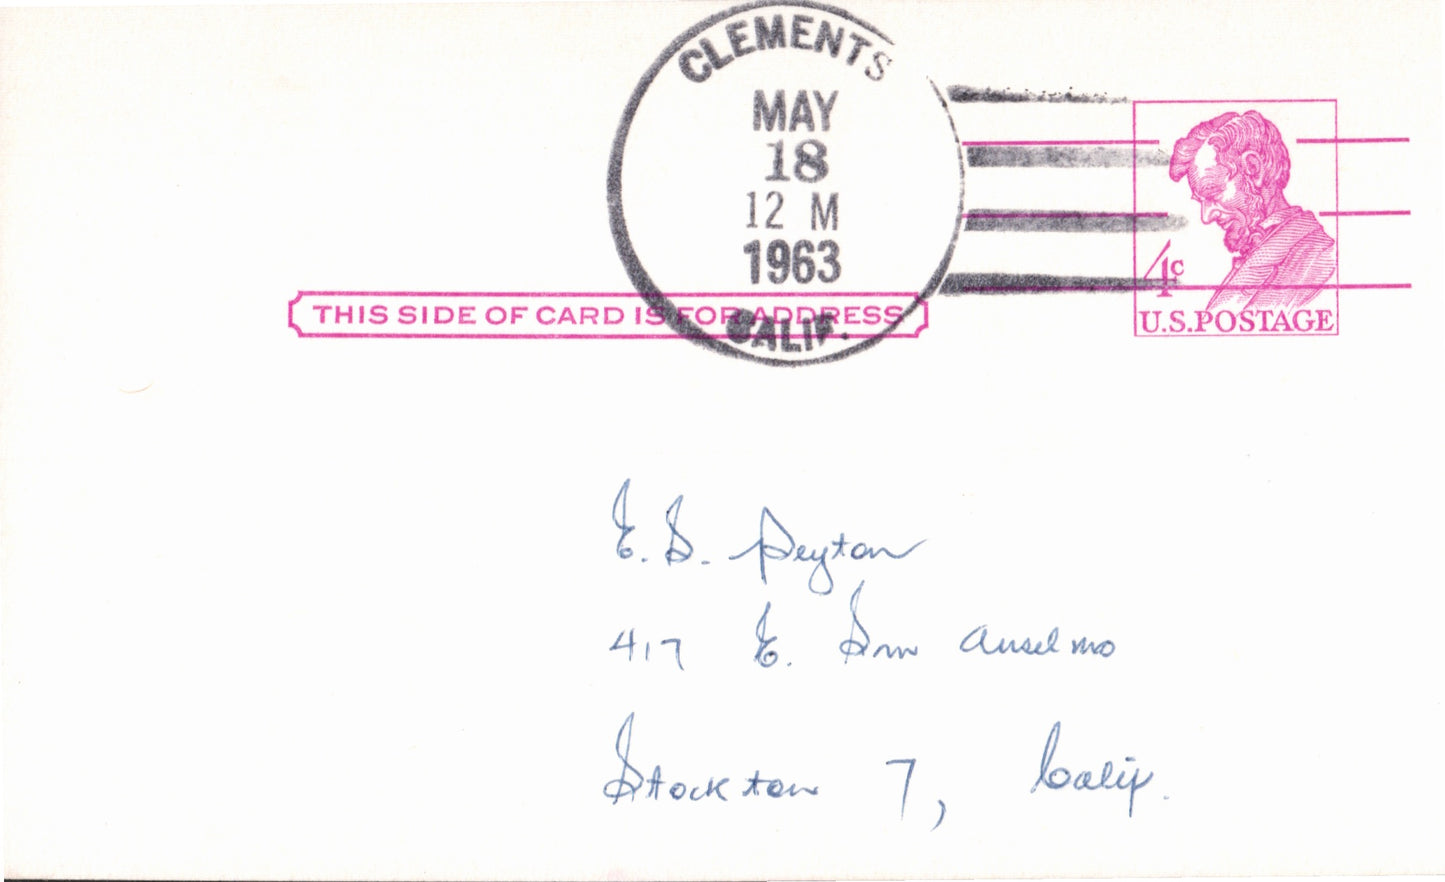 CLEMENTS
MAY
18
12 M
1963
CALIF.
4c
U.S.POSTAGE
THIS SIDE OF CARD IS FOR ADDRESS
E. S. Peyton
417 E. San Anselmo
Stockton 7, Calif.